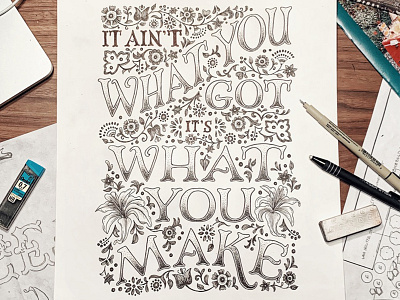 IT AIN'T
WHAT YOU
GOT
IT'S
WHAT
YOU
MAKE
0.7